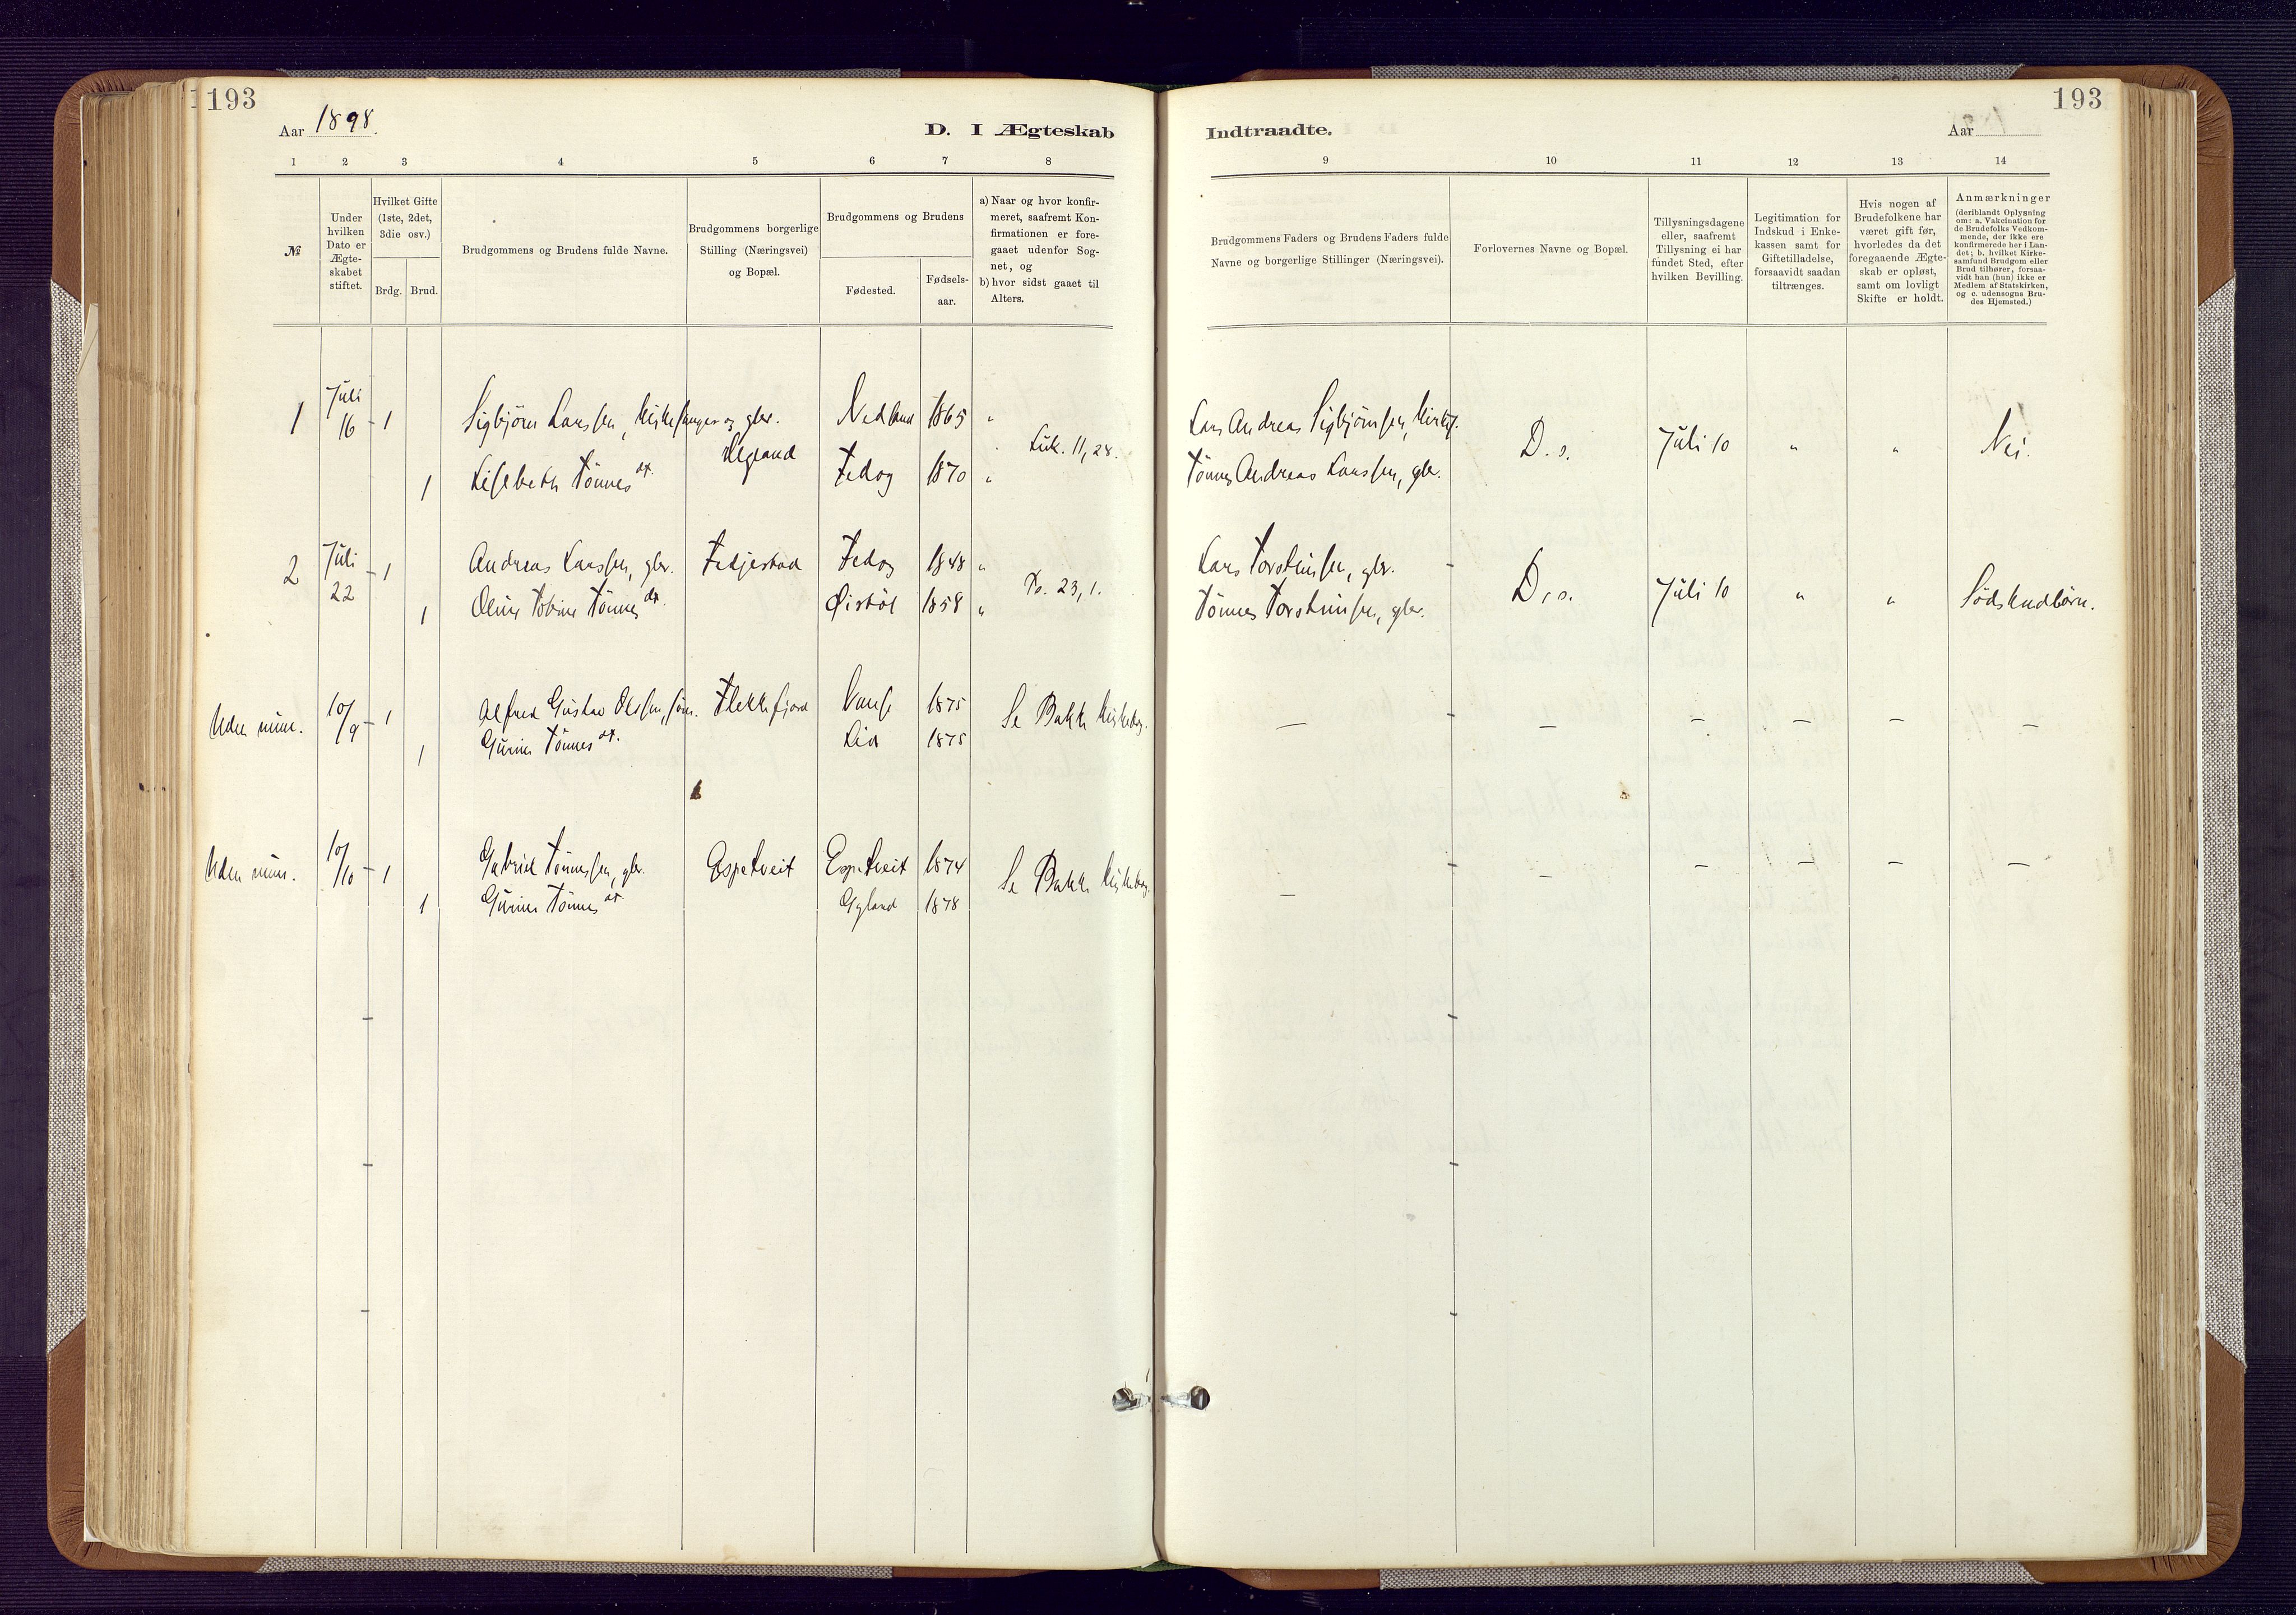 193
Aar 1898.
D. I Ægteskab
1 2 3 4 5 6 7 8
№
Under hvilken Dato er Ægteskabet stiftet.
Hvilket Gifte (1ste, 2det, 3die osv.)
Brdg. Brud.
Brudgommens og Brudens fulde Navne.
Brudgommens borgerlige Stilling (Næringsvei) og Bopæl.
Brudgommens og Brudens
Fødested.
Fødsels-
aar.
a) Naar og hvor konfir-
meret, saafremt Kon-
firmationen er fore-
gaaet udenfor Sog-
net, og
b) hvor sidst gaaet til
Alters.
1 Juli 16 1 Sigbjörn Larssen, Kirkesanger og gbr. Nedland 1865 "
Hegland
Luk. 11,28.
1 Lisebeth Tönnesdt. Fedog 1870 "
2 Juli 22 1 Andreas Larssen, gbr. Fedjestad Fedog 1848 "
Ps. 23,1.
1 Oline Tobine Tönnesdt. Öistöl 1858 "
Uden num. 10/9 1 Alfred Gustav Olssen, Flekkefjord Vanse 1875 Se Bakke Kirkebog.
1 Gurine Tönnesdt. Lid 1875
Uden num. 10/10 1 Gabriel Tönnessen, gbr. Espetveit Espetveit 1874 Se Bakke Kirkebog.
1 Gurine Tönnesdt. Gyland 1878
193
Indtraadte.
Aar
9 10 11 12 13 14
Brudgommens Faders og Brudens Faders fulde
Navne og borgerlige Stillinger (Næringsvei).
Forlovernes Navne og Bopæl.
Tillysningsdagene
eller, saafremt
Tillysning ei har
fundet Sted, efter
hvilken Bevilling.
Legitimation for
Indskud i Enke-
kassen samt for
Giftetilladelse,
forsaavidt saadan
tiltrænges.
Hvis nogen af
Brudefolkene har
været gift før,
hvorledes da det
foregaaende Ægte-
skab er opløst,
samt om lovligt
Skifte er holdt.
Anmærkninger
(deriblandt Oplysning
om: a. Vakcination for
de Brudefolks Vedkom-
mende, der ikke ere
konfirmerede her i Lan-
det; b. hvilket Kirke-
samfund Brudgom eller
Brud tilhører, forsaa-
vidt han (hun) ikke er
Medlem af Statskirken,
og c. udensogns Bru-
des Hjemsted.)
Lars Andreas Sigbjörnsen, Kirkes.
D. s. Juli 10 " " Nei.
Tönnes Andreas Larssen, gbr.
Lars Torsteinsen, gbr.
D. s. Juli 10 " " Södskendbörn.
Tönnes Torsteinsen, gbr.
— — — — — —
— — — — — —